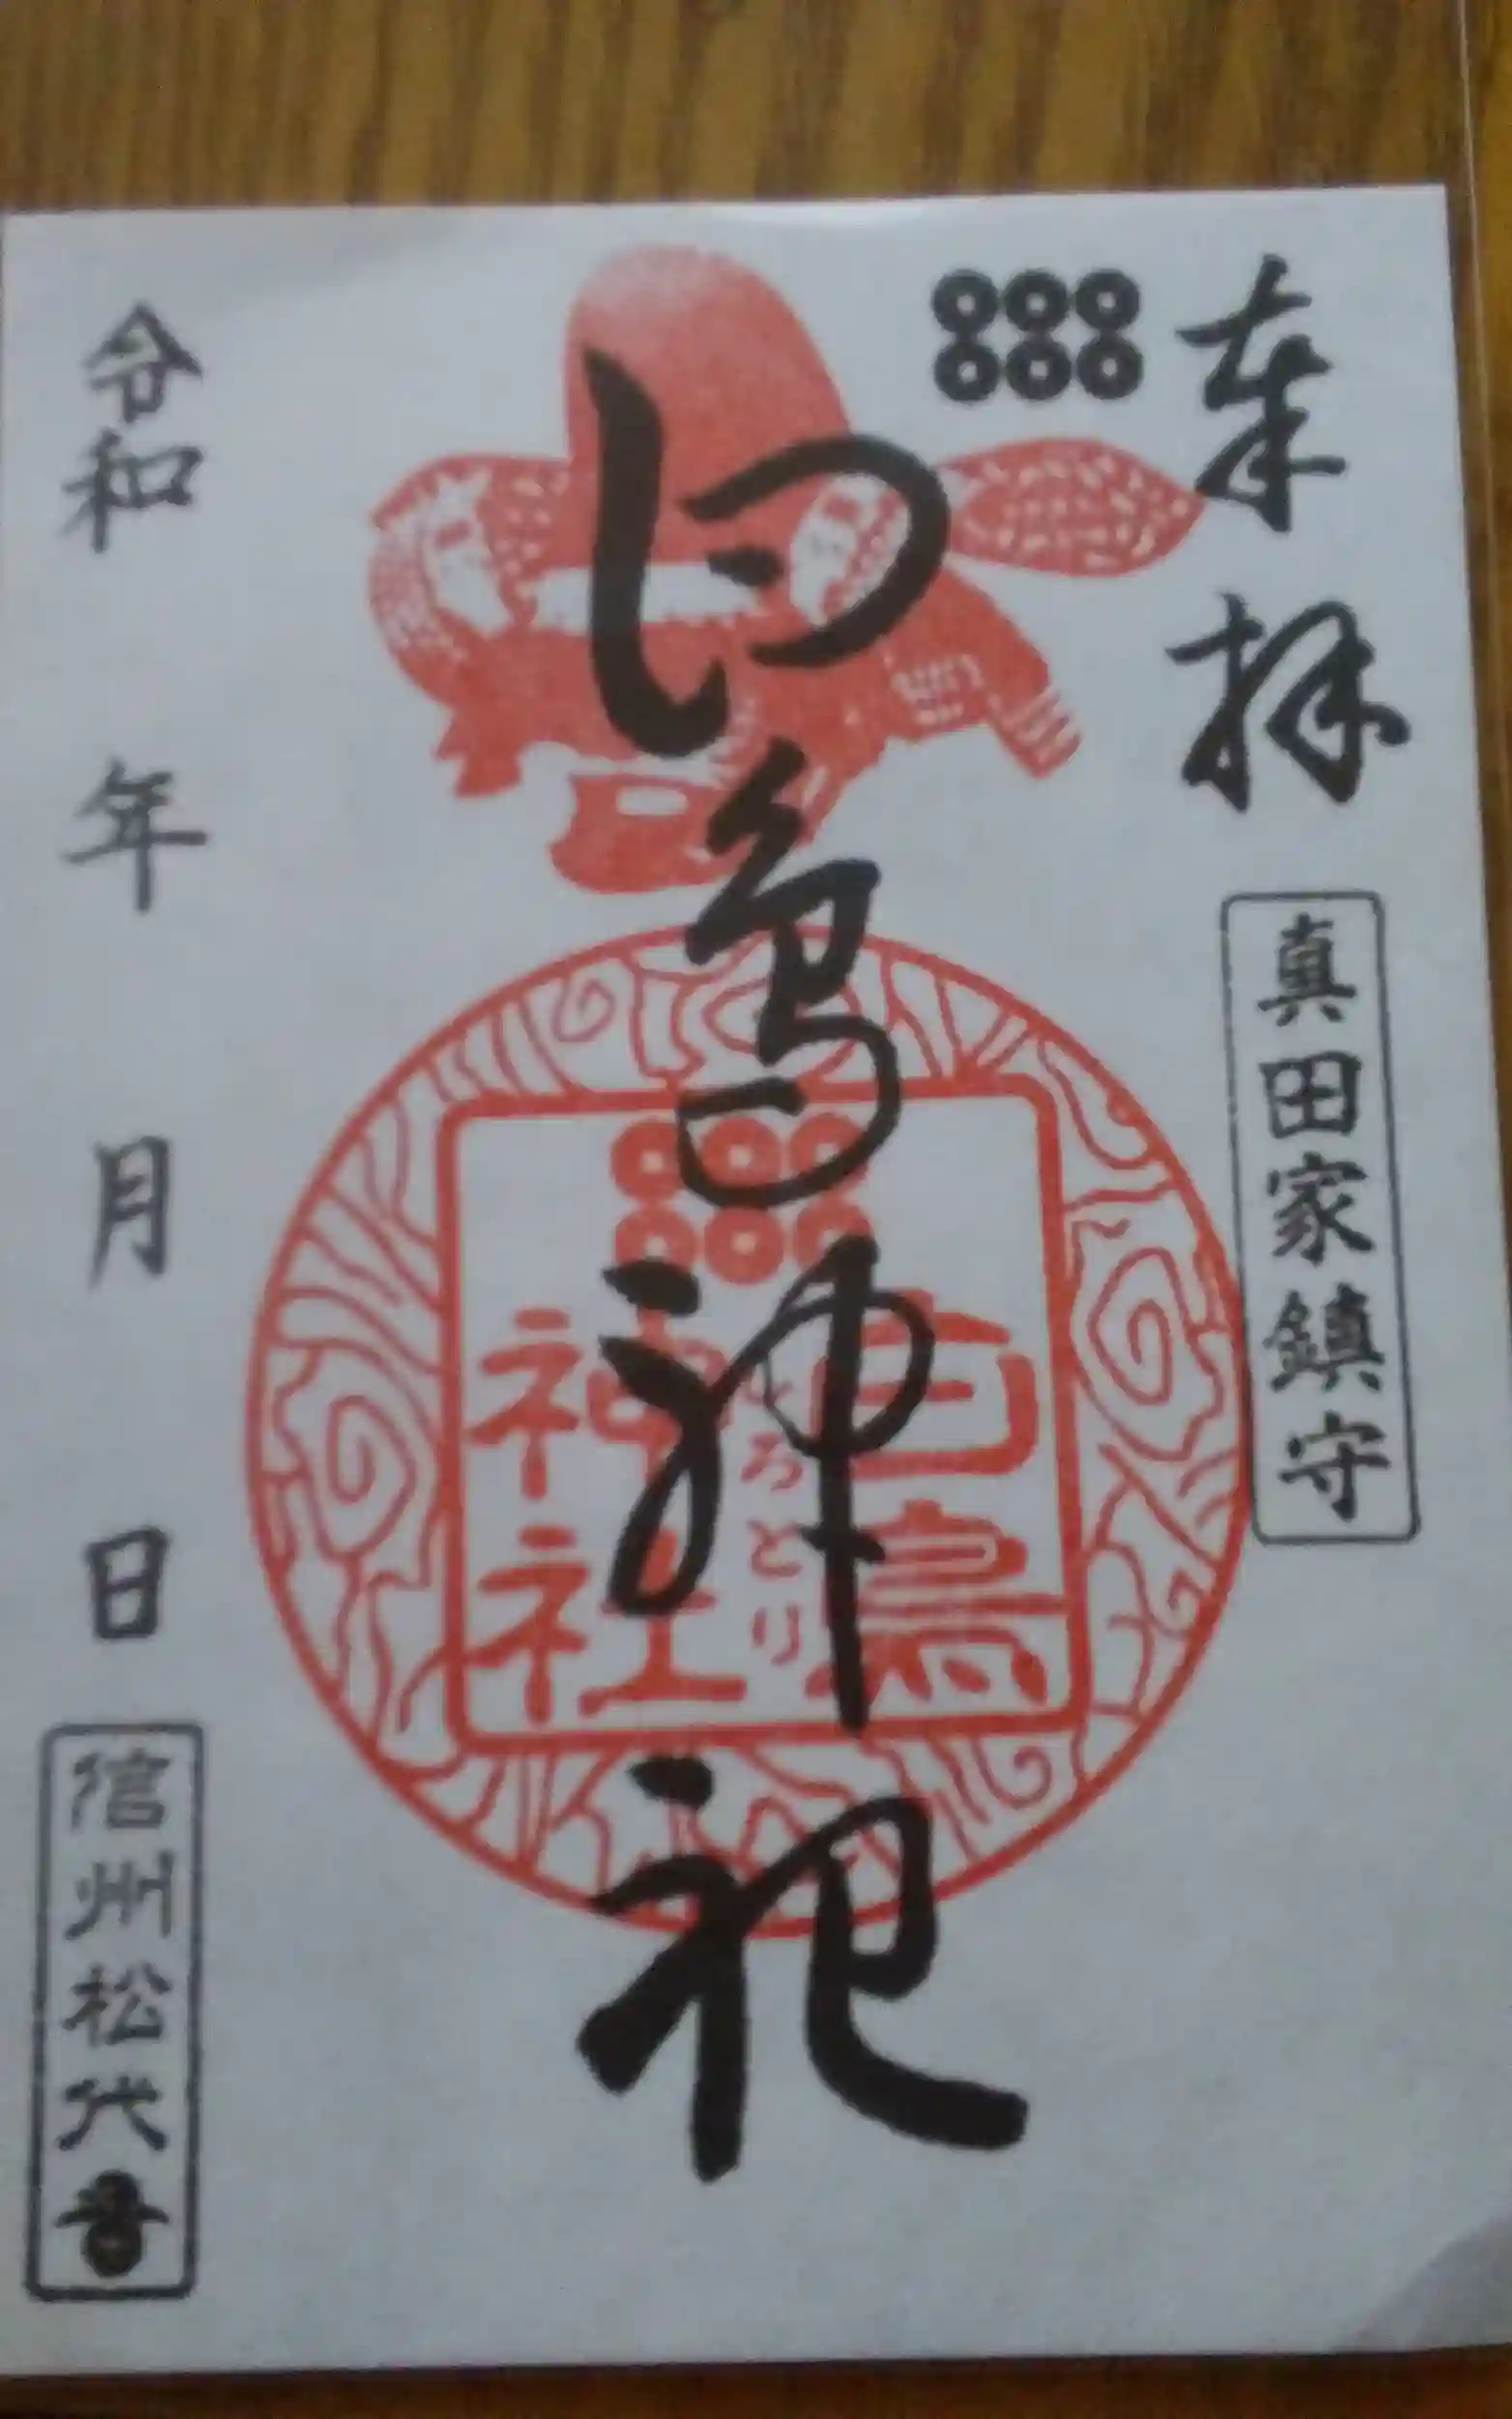 奉拝
真田家鎮守
白鳥神社
白鳥
しろとり
神社
令和 年 月 日
信州松代